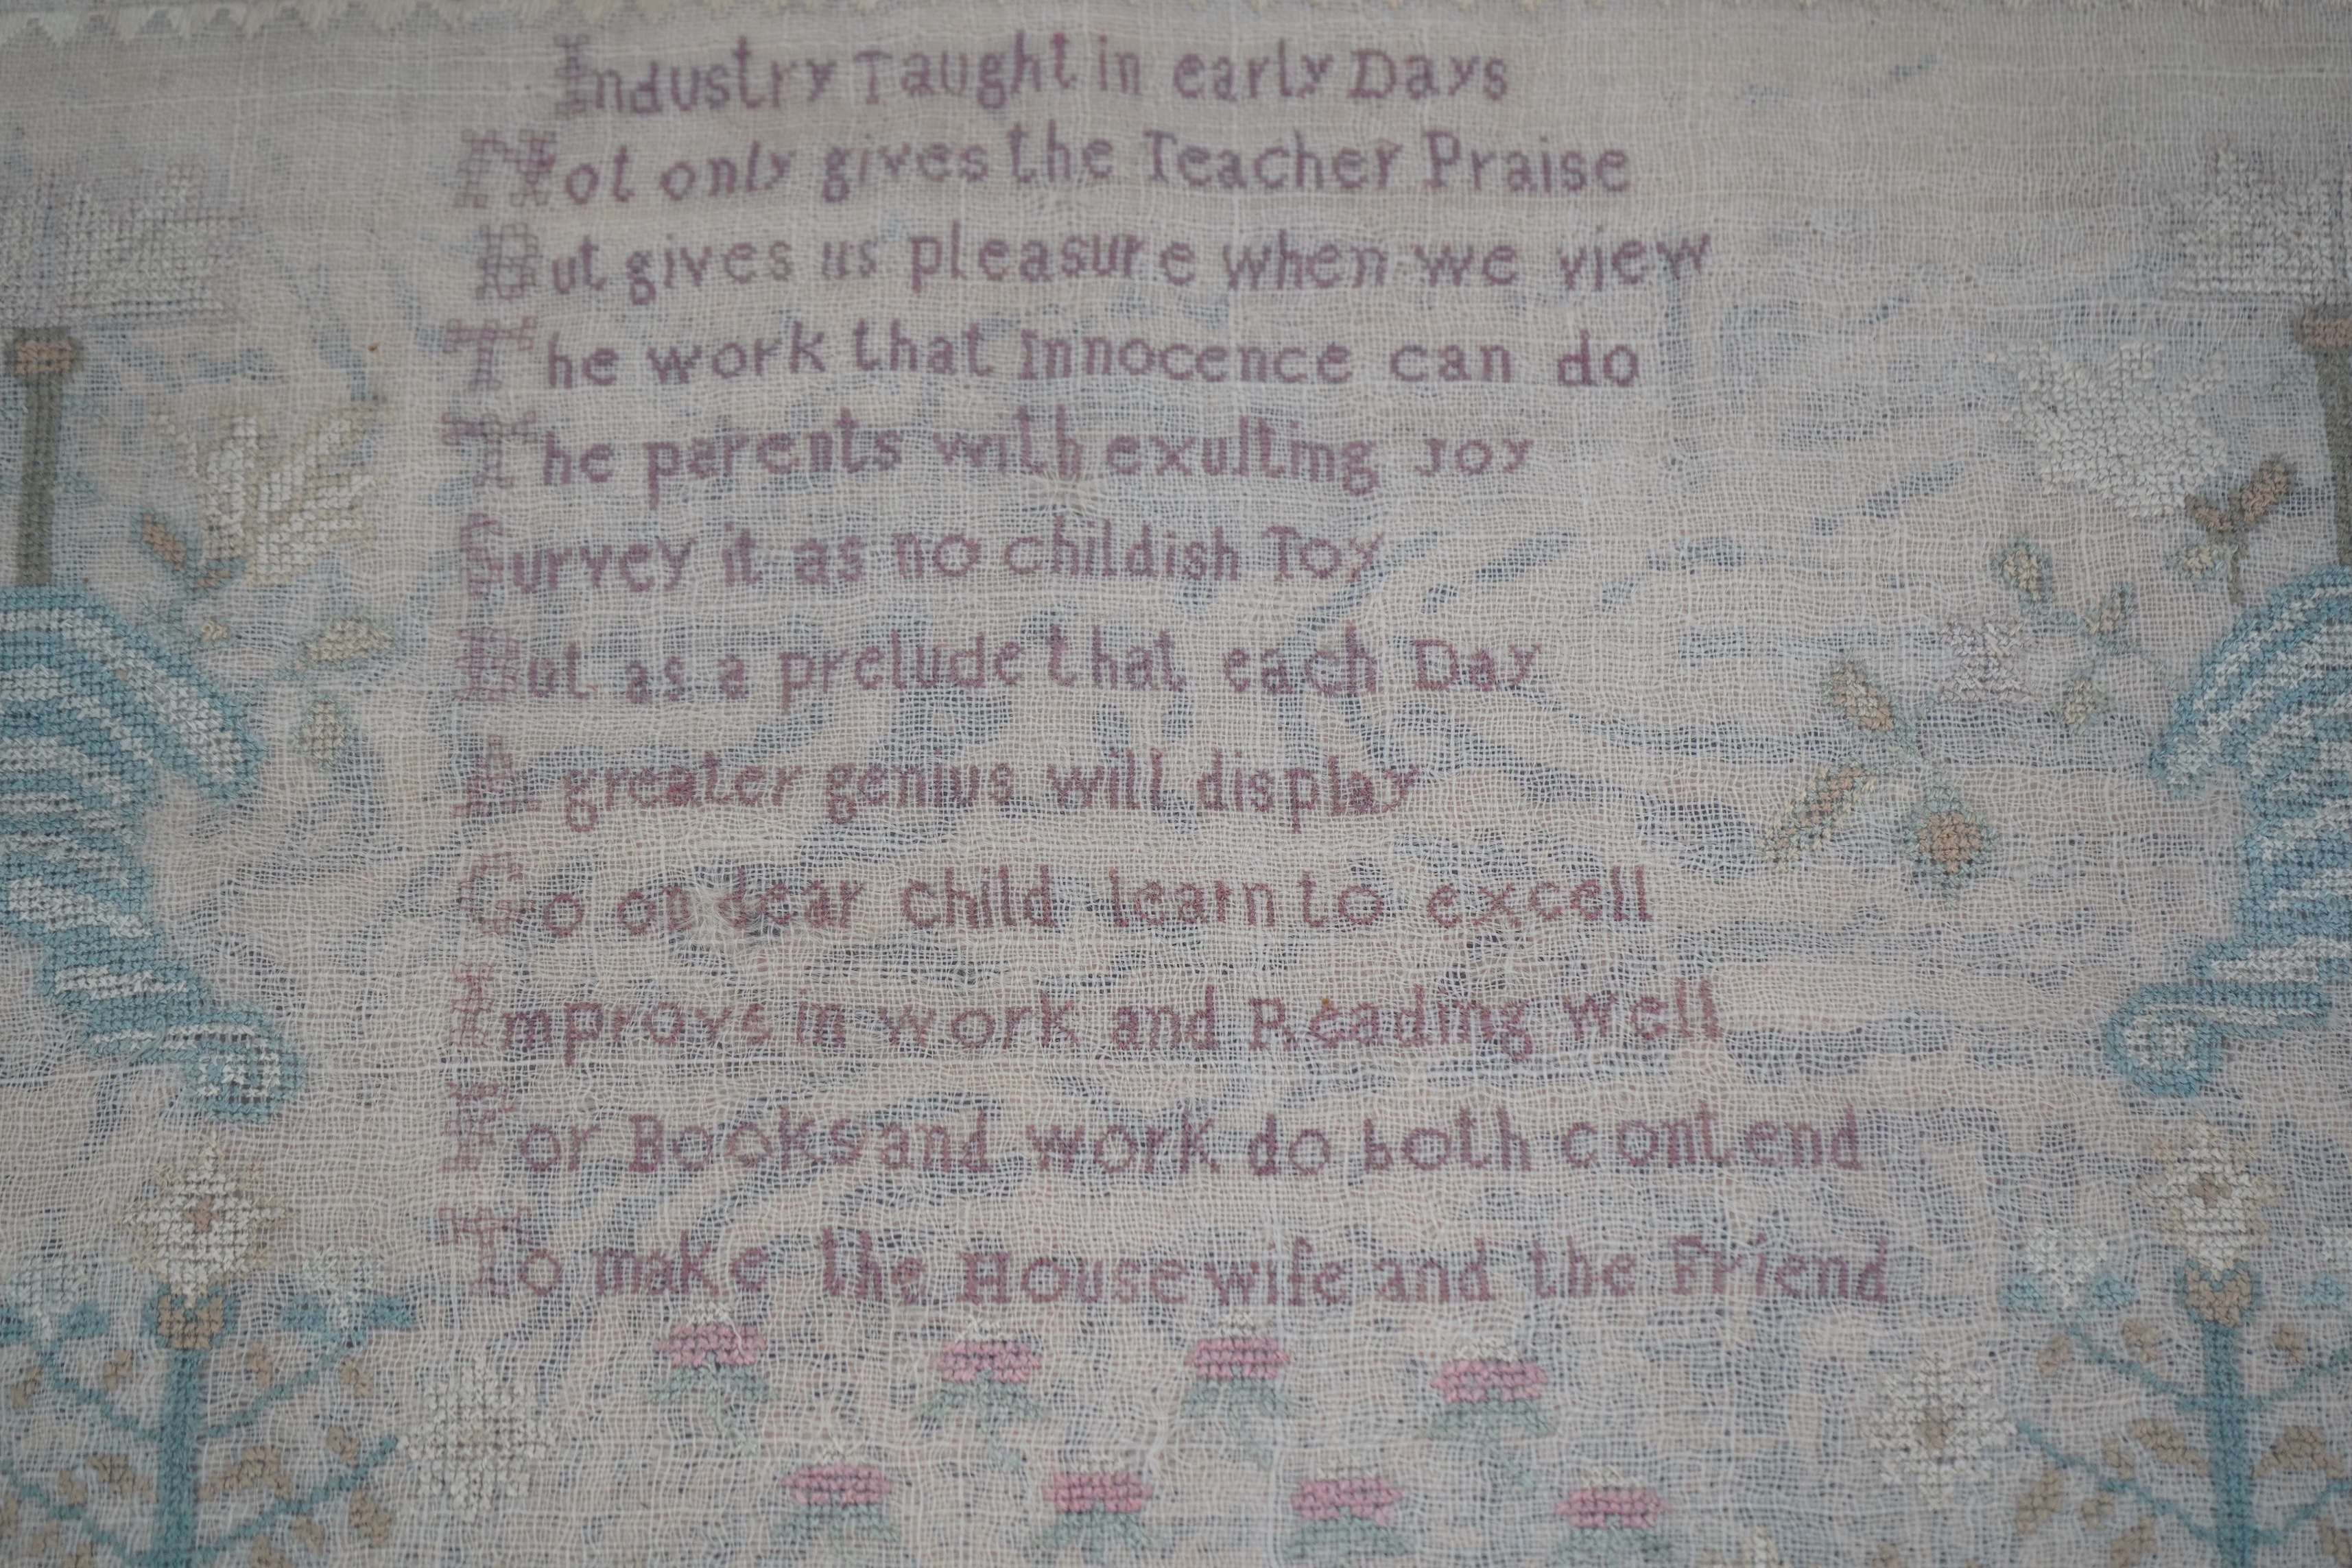 Industry Taught in early Days
Not only gives the Teacher Praise
But gives us pleasure when we view
The work that Innocence can do
The parents with exulting Joy
Survey it as no childish Toy
But as a prelude that each Day
A greater genius will display
Go on dear child learn to excell
Improve in work and Reading well
For Books and work do both contend
To make the Housewife and the Friend